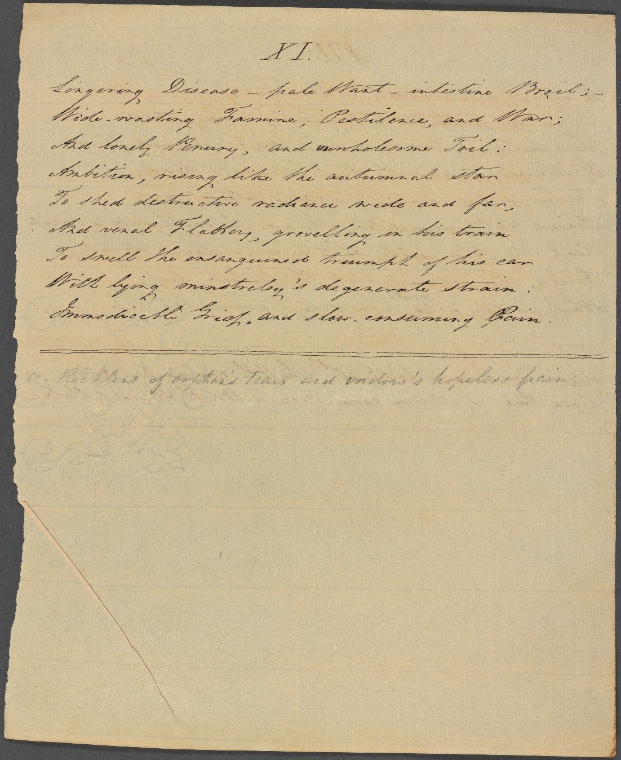 XI.
Lingering Disease – pale Want – intestine Broil; –
Wide-wasting Famine, Pestilence, and War;
And lonely Penury, and unwholesome Toil:
Ambition, rising like the autumnal star
To shed destructive radiance wide and far,
And venal Flattery, grovelling in his train
To swell the ensanguined triumph of his car
With lying minstrelsy's degenerate strain:
Immedicable Grief, and slow-consuming Pain.
or Reckless of orphan's tears and widow's hopeless pain